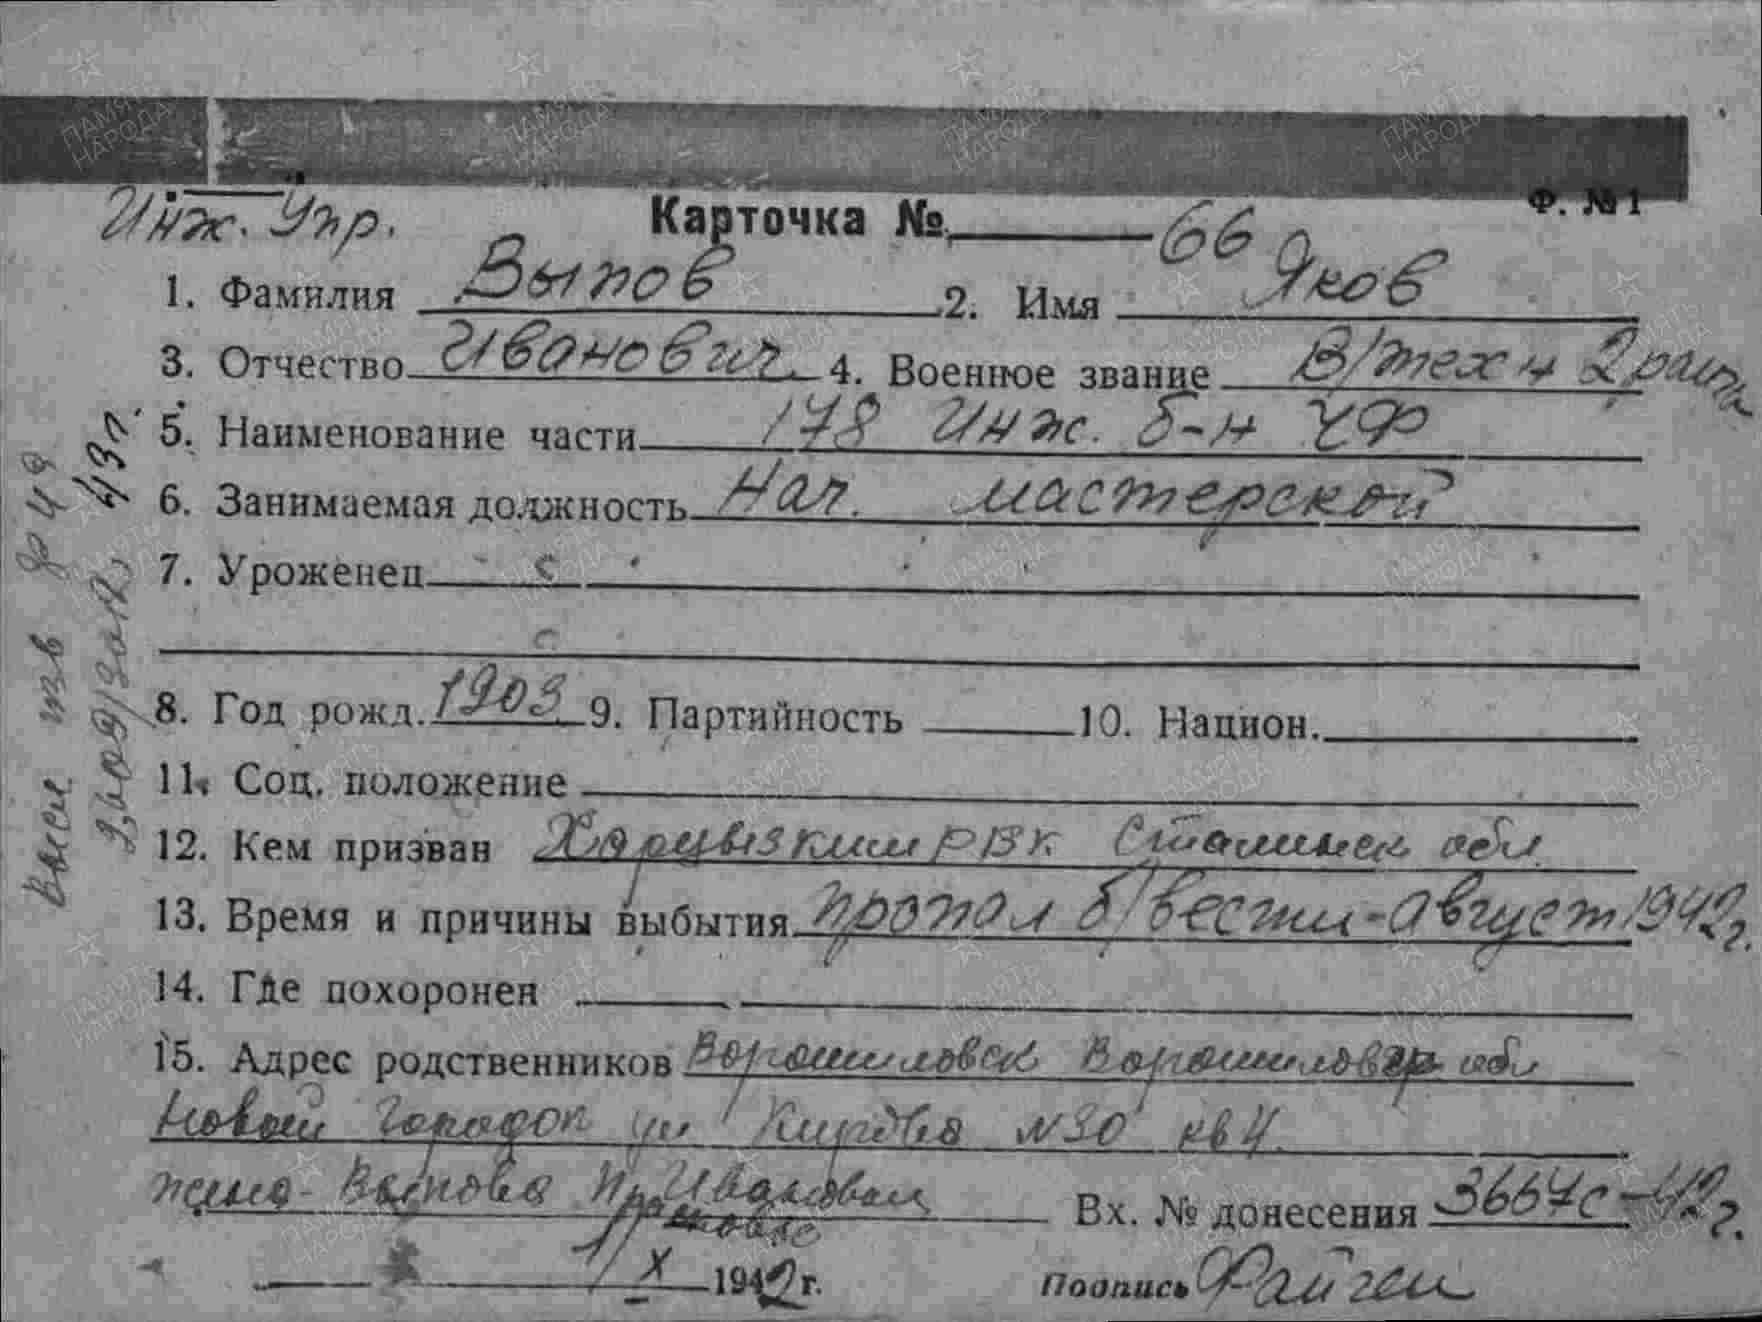 Ф. № 1
Инж. Упр. Карточка № 66
1. Фамилия Выпов 2. Имя Яков
3. Отчество Иванович 4. Военное звание В/техн 2 ранга
5. Наименование части 178 Инж. б-н ЧФ
6. Занимаемая должность Нач. мастерской
7. Уроженец
8. Год рожд. 1903 9. Партийность 10. Национ.
11. Соц. положение
12. Кем призван Харцызким РВК Сталинск обл
13. Время и причины выбытия пропал б/вести - август 1942 г.
14. Где похоронен
15. Адрес родственников Ворошиловск Ворошиловгр обл
Новый городок ул Кирова № 30 кв 4
жена - Выпова Ивановна
Вх. № донесения 3667с - 42 г.
1/X 1942 г. Подпись
43 г.
ПАМЯТЬ НАРОДА